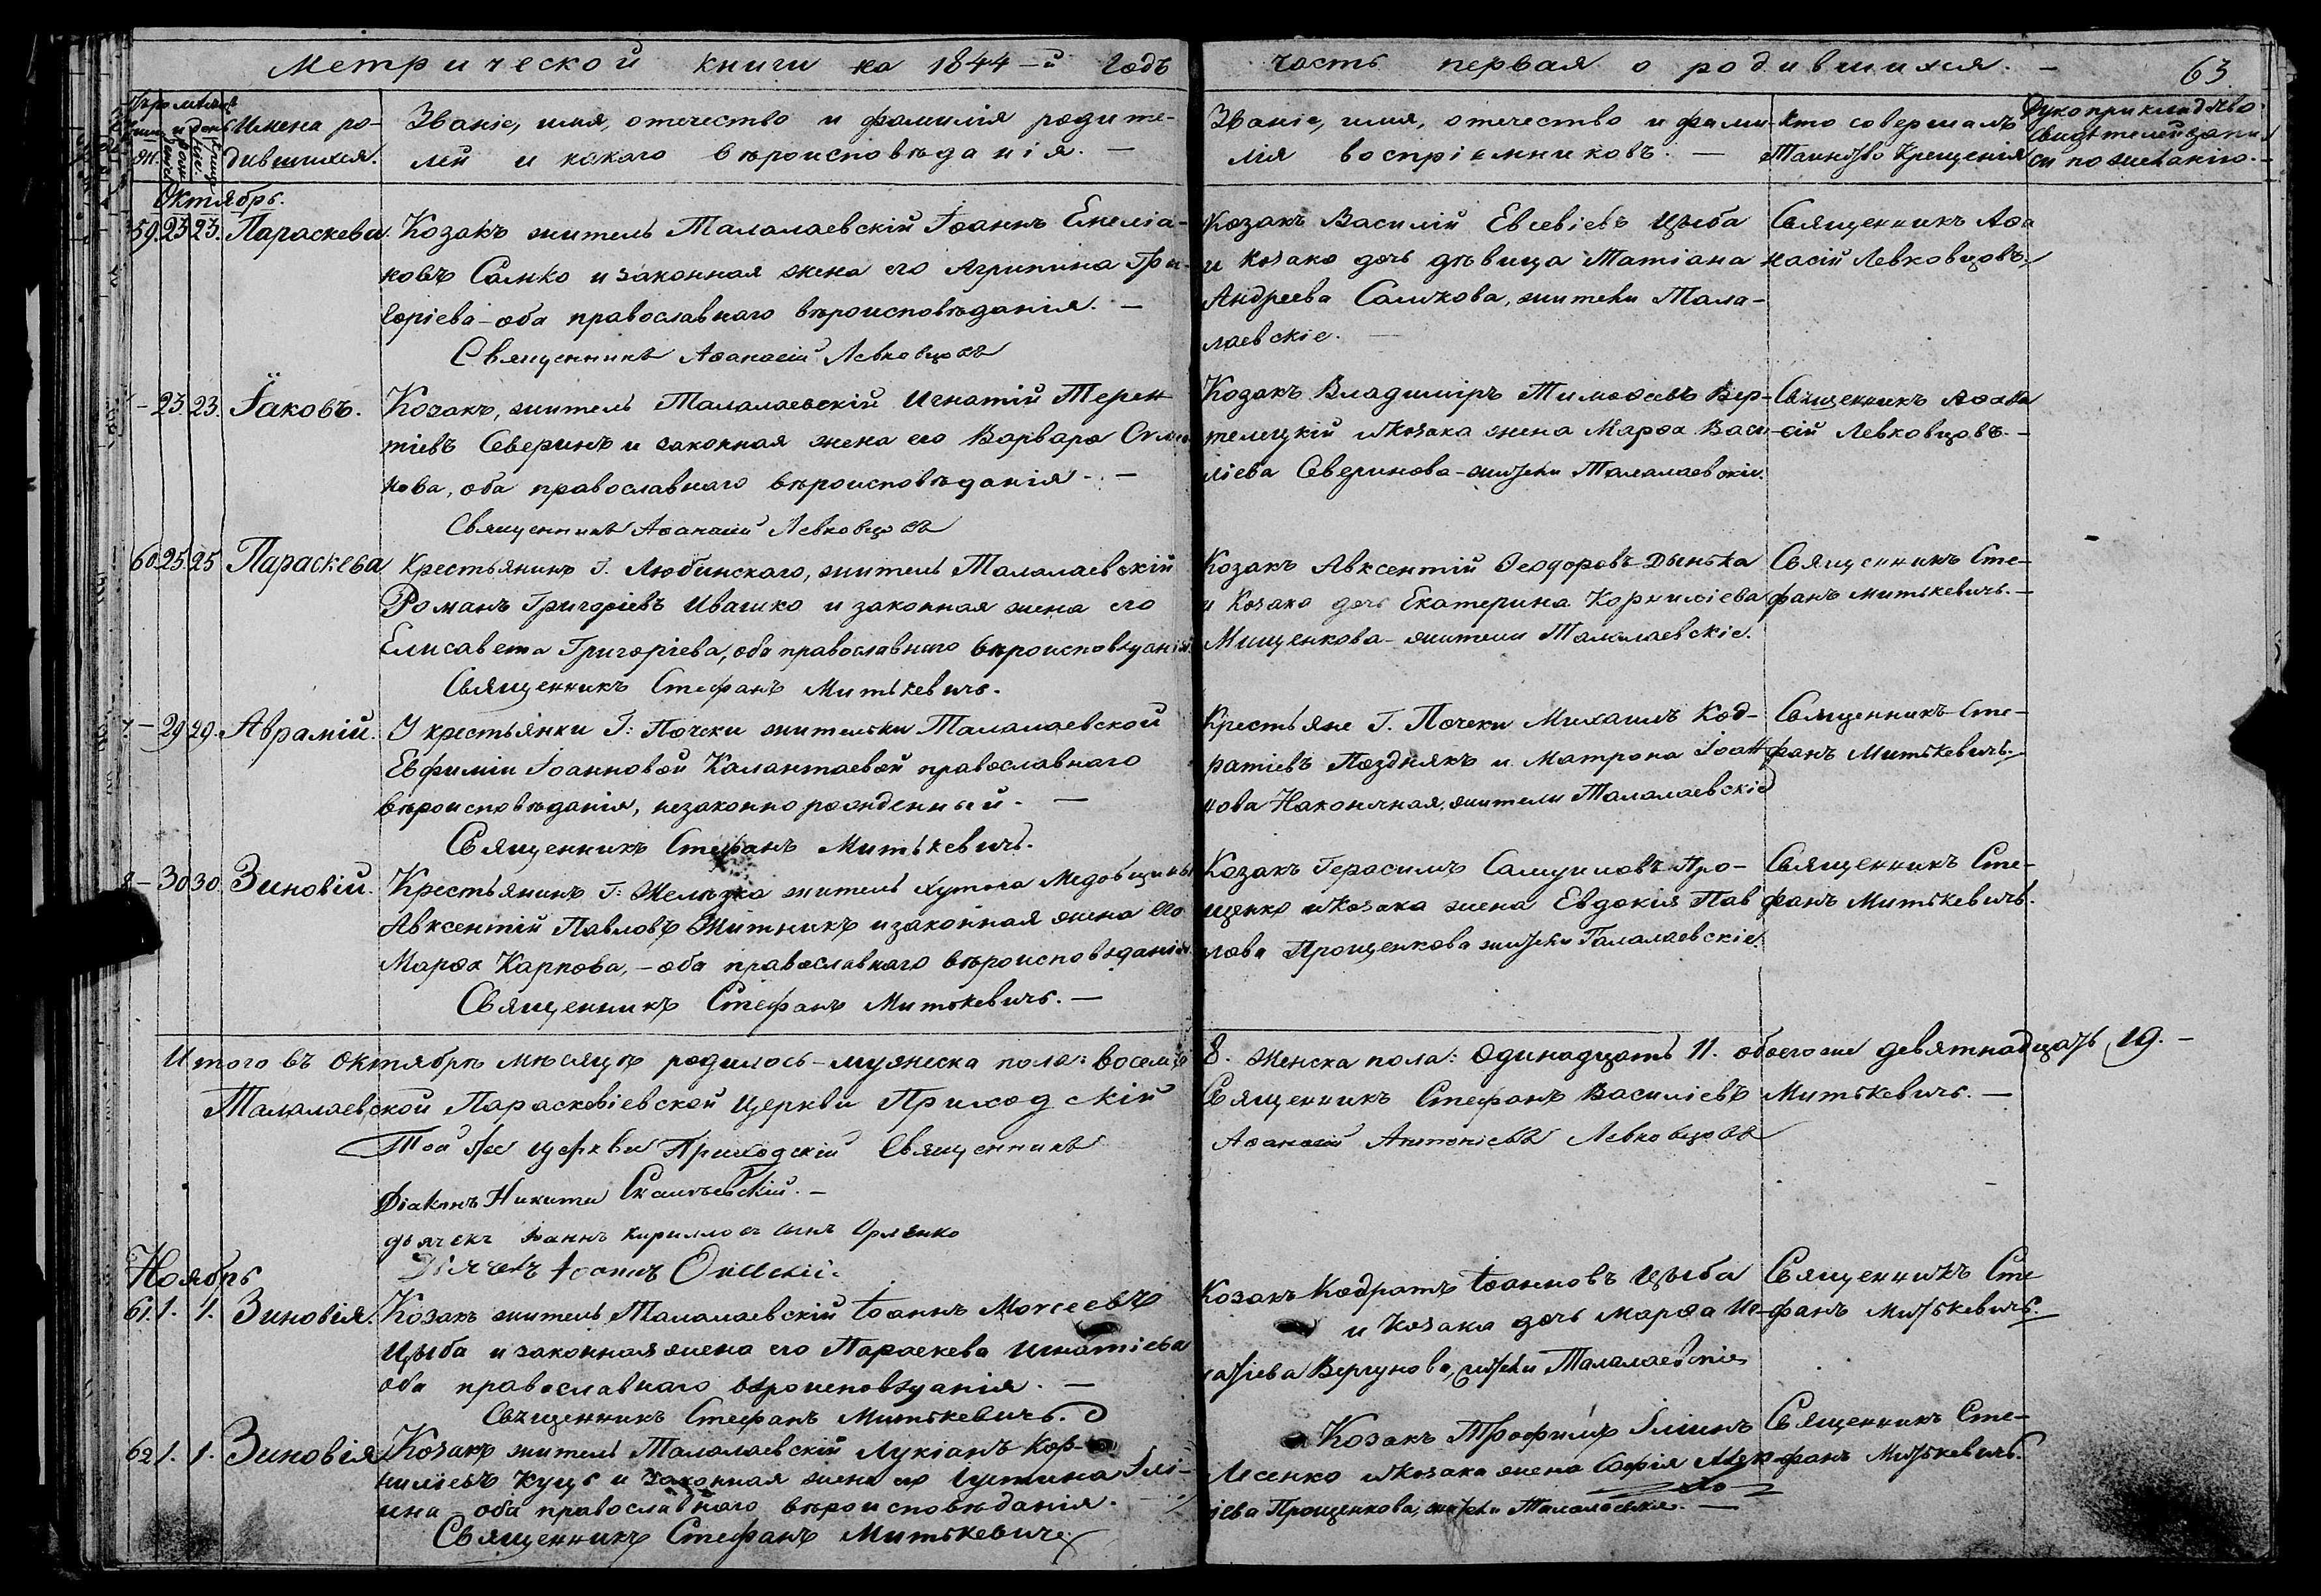 Метрической книги на 1844-й годъ часть первая о родившихся. — 63
Имена ро-
дившихся.
Званіе, имя, отечество и фамилія родите-
лей и какого вѣроисповѣданія. —
Званіе, имя, отечество и фами-
лія воспріемниковъ. —
Кто совершалъ
Таинство Крещенія
Рукоприкладство
свидѣтелей запи
си по желанію. —
Октябрь.
59. 23 23. Параскева.
Козакъ житель Талалаевскій Іоаннъ Емеліа-
новъ Самко и законная жена его Агрипина Гри-
горіева - оба православнаго вѣроисповѣданія. —
Священникъ Аѳанасій Левковцовъ
Козакъ Василій Евсевіевъ Цыба
и козака дочь дѣвица Татіана
Андреева Самкова, жители Тала-
лаевскіе.
Священникъ Аѳа
насій Левковцовъ.
- 23. 23. Іаковъ.
Козакъ, житель Талалаевскій Игнатій Терен
тіевъ Северинъ и законная жена его Варвара
нова, оба православнаго вѣроисповѣданія. —
Священникъ Аѳанасій Левковцовъ
Козакъ Владиміръ Тимоѳеевъ Вер-
телецкій и козака жена Марѳа Васи-
ліева Северинова - жители Талалаевскіи.
Священникъ Аѳана
сій Левковцовъ. -
60. 25. 25 Параскева
Крестьянинъ Г. Любинскаго, житель Талалаевскій
Романъ Григоріевъ Ивашко и законная жена его
Елисавета Григоріева, оба православнаго вѣроисповѣданія.
Священникъ Стефанъ Митькевичъ.
Козакъ Авксентій Ѳеодоровъ Дынька
и козака дочь Екатерина Корниліева
Мищенкова - жители Талалаевскіе.
Священникъ Сте-
фанъ Митькевичъ. —
7 - 29 29. Аврамій.
У крестьянки Г: Почеки жительки Талалаевской
Евфиміи Іоанновой Калантаевой православнаго
вѣроисповѣданія, незаконно рожденный. —
Священникъ Стефанъ Митькевичъ.
Крестьяне Г. Почеки Михаилъ Код-
ратіевъ Позднякъ и Матрона Іоан
нова Наконечная, жители Талалаевскіе
Священникъ Сте-
фанъ Митькевичъ.
8 - 30 30. Зиновій.
Крестьянинъ Г: житель хутора Медовщины
Авксентій Павловъ Житникъ и законная жена его
Марѳа Карпова, - оба православнаго вѣроисповѣданія.
Священникъ Стефанъ Митькевичъ. —
Козакъ Герасимъ Самуиловъ Про-
щенко и козака жена Евдокія Пав
лова Прощенкова жители Талалаевскіе.
Священникъ Сте-
фанъ Митькевичъ.
Итого въ Октябрѣ мѣсяцѣ родилось - мужеска пола: восемь 8. Женска пола: одинадцать 11. обоего же девятнадцать 19. -
Талалаевской Параскевіевской церкви Приходскій Священникъ Стефанъ Василіевъ Митькевичъ. —
Той же церкви Приходскій Священникъ Аѳанасій Антоніевъ Левковцовъ
Діаконъ Никита
дьячекъ Іоаннъ Кирилловъ сынъ Орленко
Ноябрь
61. 1. 1. Зиновія.
Козакъ житель Талалаевскій Іоаннъ Моисеевъ
Цыба и законная жена его Параскева Игнатіева
оба православнаго вѣроисповѣданія. —
Священникъ Стефанъ Митькевичъ.
Козакъ Кодратъ Іоанновъ Цыба
и козака дочь Марѳа Иг-
натіева Вергунова, жители Талалаевскіе
Священникъ Сте
фанъ Митькевичъ.
62 1. 1. Зиновія
Козакъ житель Талалаевскій Лукіанъ Кор-
ниліевъ Куцъ и законная жена его Іустина Илі-
ина оба православнаго вѣроисповѣданія. —
Священникъ Стефанъ Митькевичъ
Козакъ Трофимъ Иліинъ
Лесенко и козака жена Софія
іева Прощенкова, жители Талалаевскіе. —
Священникъ Сте-
фанъ Митькевичъ.